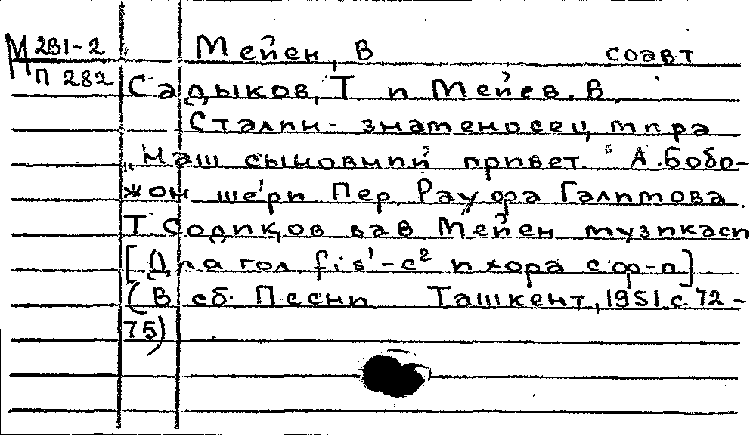 М 281-2 Мейен, В соавт
П 282 Садыков, Т и Мейев. В.
Сталин - знаменосец мира
„Наш сыновний привет." А. Бобо-
жон шеъри Пер. Рауфа Галимова.
Т Содиқов ва В Мейен музикаси
[Для гол fis¹-c² и хора с ф-п]
(В сб. Песни Ташкент, 1951. с 72-
75)